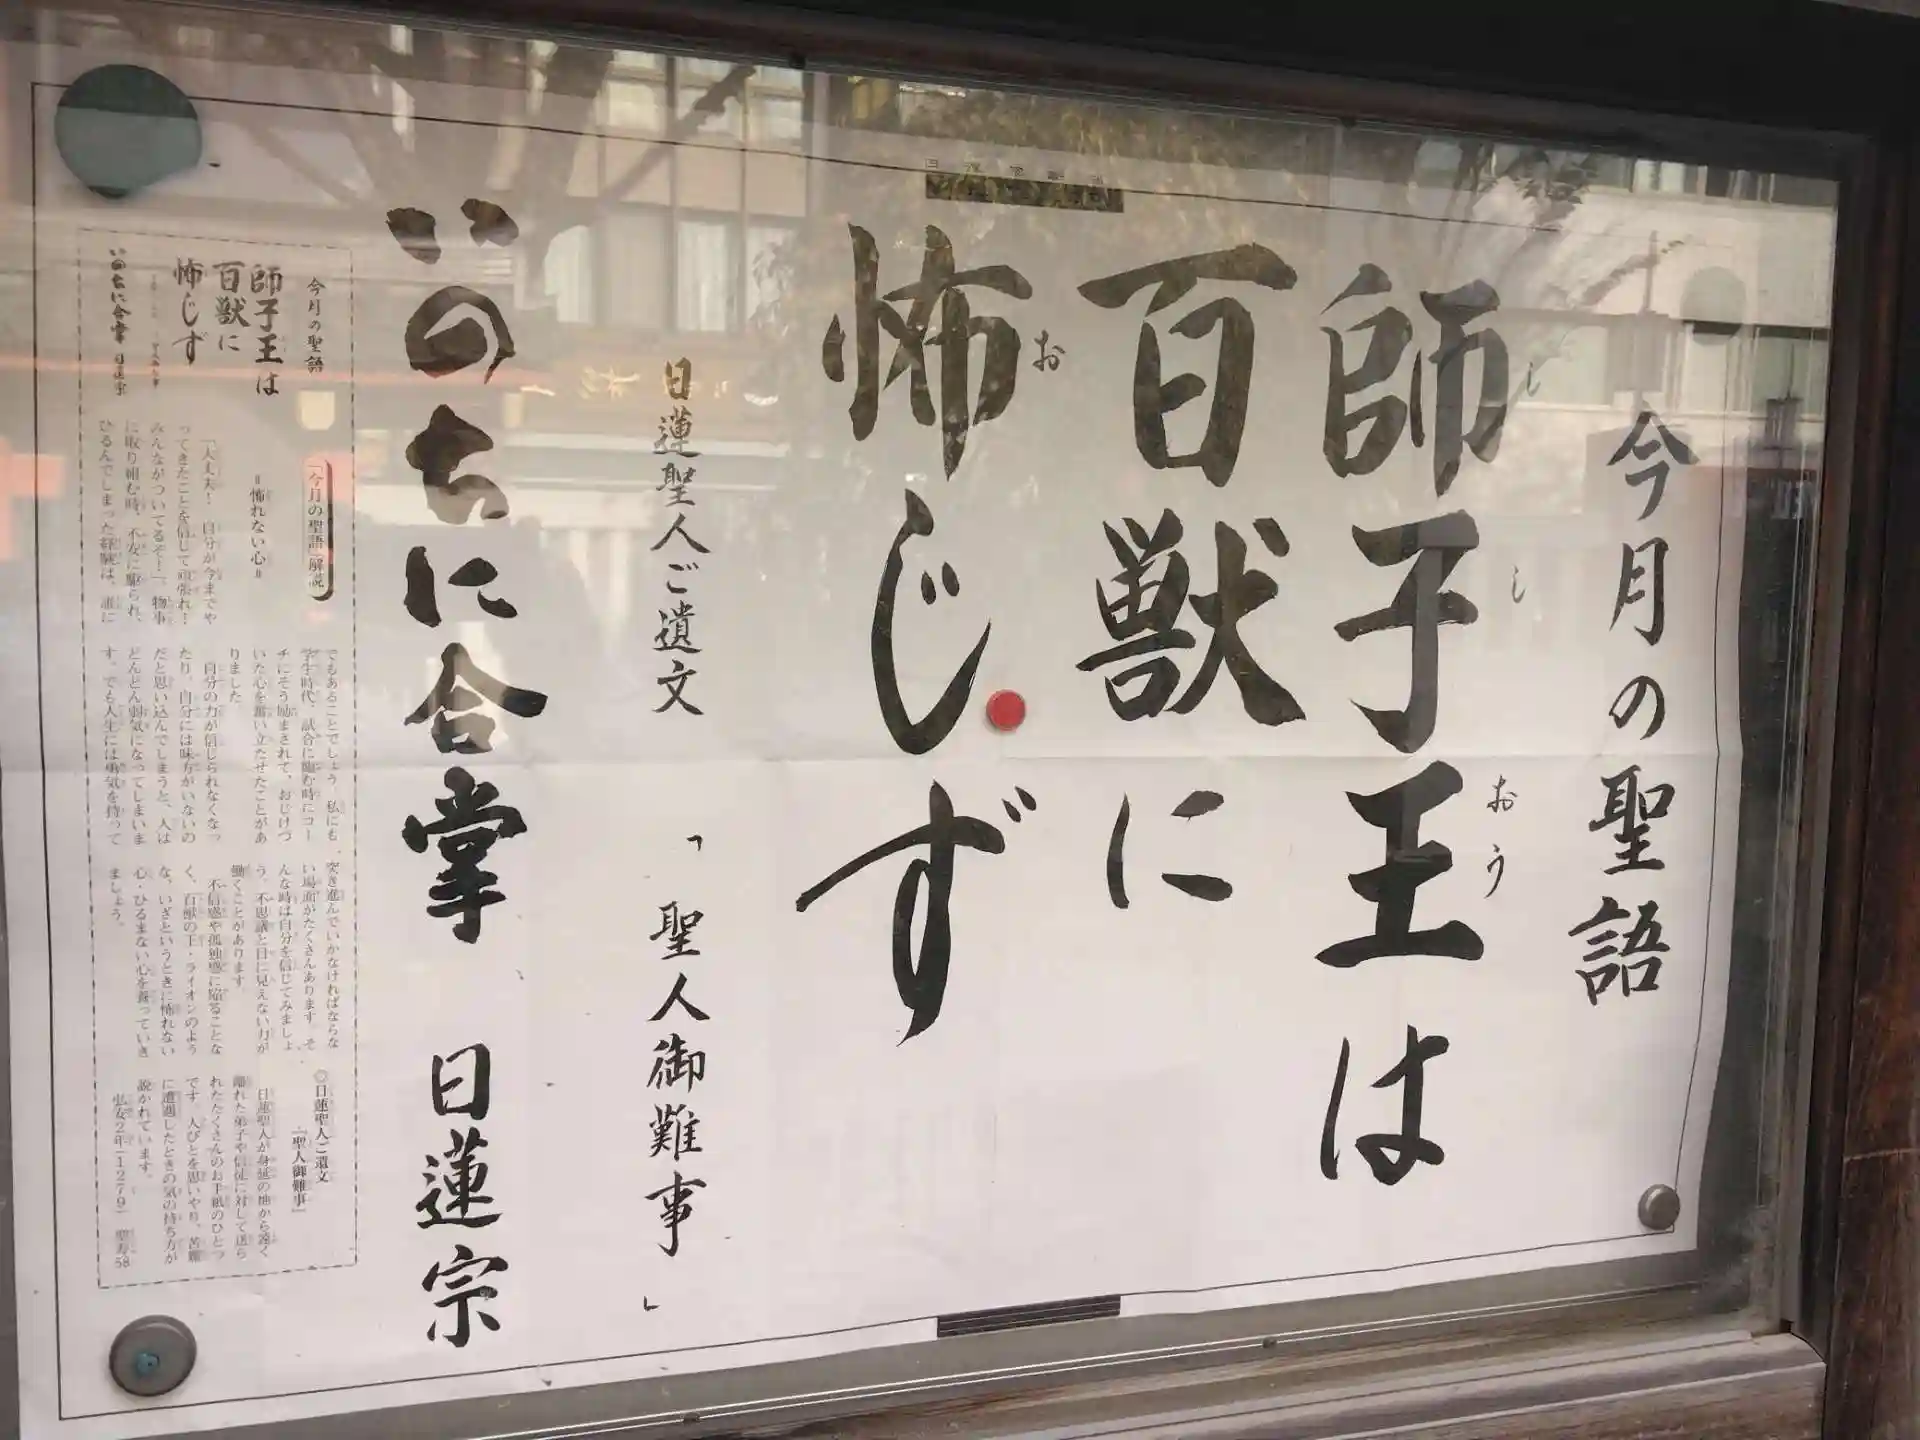 今月の聖語
師子王は
し
し
おう
百獣に
怖じず
お
日蓮聖人ご遺文
「聖人御難事」
いのちに合掌 日蓮宗
今月の聖語
師子王は
百獣に
怖じず
いのちに合掌 日蓮宗
「今月の聖語」解説
=怖れない心=
「大丈夫!自分が今までや
ってきたことを信じて頑張れ!
みんながついてるぞ!」、物事
に取り組む時、不安に駆られ、
ひるんでしまった経験は、誰に
でもあることでしょう。私にも、
学生時代、試合に臨む時にコー
チにそう励まされて、おじけづ
いた心を奮い立たせたことがあ
りました
自分の力が信じられなくなっ
たり、自分には味方がいないの
だと思い込んでしまうと、人は
どんどん弱気になってしまいま
す。でも人生には勇気を持って
突き進んでいかなければならな
い場面がたくさんあります。そ
んな時は自分を信じてみましょ
う。不思議と目に見えない力が
働くことがあります。
不信感や孤独感に陥ることな
く、百獣の王・ライオンのよう
な、いざというときに怖れない
心・ひるまない心を養っていき
ましょう。
◎日蓮聖人ご遺文
『聖人御難事』
日蓮聖人が身延の地から遠く
離れた弟子や信徒に対して送ら
れたたくさんのお手紙のひとつ
です。人びとを思いやり、苦難
に遭遇したときの気の持ち方が
説かれています。
弘安2年(1279) 聖寿58